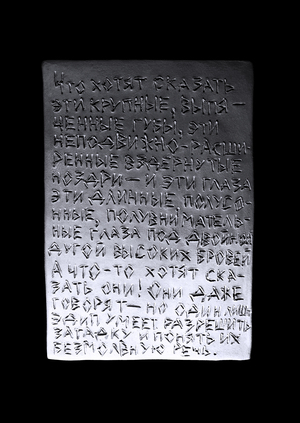 Что хотят сказать
эти крупные, выпя-
ченные губы, эти
неподвижно-расши-
ренные вздернутые
ноздри — и эти глаза
эти длинные, полусон-
ные, полувниматель-
ные глаза под двойной
дугой высоких бровей
А что-то хотят ска-
зать они! Они даже
говорят — но один лишь
Эдип умеет разрешить
загадку и понять их
безмолвную речь.